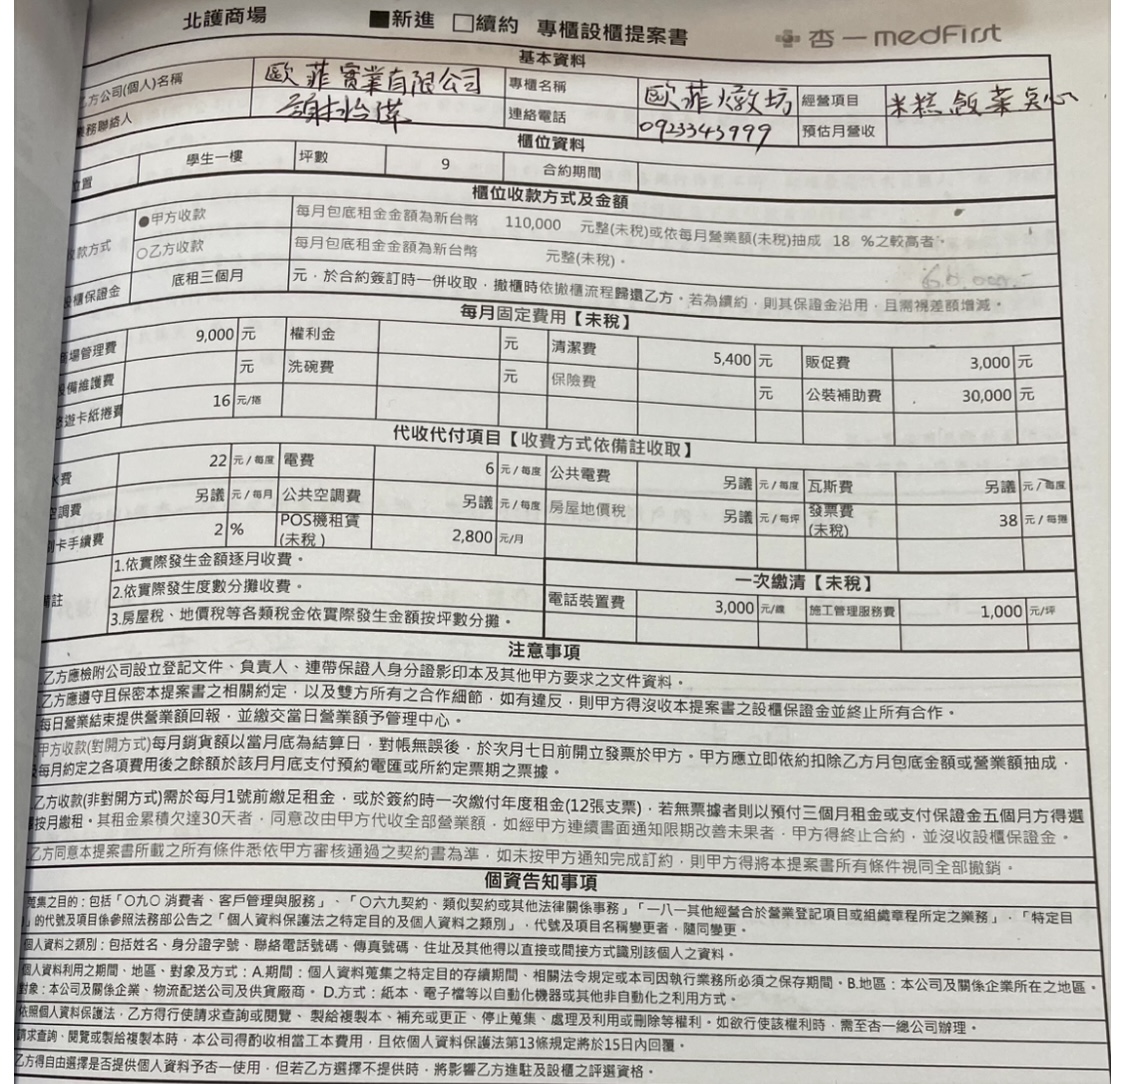 北護商場 ■新進 □續約 專櫃設櫃提案書 杏一medFirst
基本資料
乙方公司(個人)名稱 歐菲實業有限公司 專櫃名稱 歐菲燉坊 經營項目 米糕飯菜點心
業務聯絡人 謝怡 連絡電話 0923343999 預估月營收
櫃位資料
位置 學生一樓 坪數 9 合約期間
櫃位收款方式及金額
收款方式 ●甲方收款 每月包底租金金額為新台幣 110,000 元整(未稅)或依每月營業額(未稅)抽成 18 %之較高者。
○乙方收款 每月包底租金金額為新台幣 元整(未稅)。
設櫃保證金 底租三個月 元，於合約簽訂時一併收取，撤櫃時依撤櫃流程歸還乙方。若為續約，則其保證金沿用，且需視差額增減。
每月固定費用【未稅】
商場管理費 9,000 元 權利金 元 清潔費 5,400 元 販促費 3,000 元
設備維護費 元 洗碗費 元 保險費 元 公裝補助費 30,000 元
悠遊卡紙捲費 16 元/捲
代收代付項目【收費方式依備註收取】
水費 22 元/每度 電費 6 元/每度 公共電費 另議 元/每度 瓦斯費 另議 元/每度
空調費 另議 元/每月 公共空調費 另議 元/每度 房屋地價稅 另議 元/每坪 發票費(未稅) 38 元/每捲
刷卡手續費 2 % POS機租賃(未稅) 2,800 元/月
備註 1.依實際發生金額逐月收費。
2.依實際發生度數分攤收費。 一次繳清【未稅】
3.房屋稅、地價稅等各類稅金依實際發生金額按坪數分攤。 電話裝置費 3,000 元/線 施工管理服務費 1,000 元/坪
注意事項
乙方應檢附公司設立登記文件、負責人、連帶保證人身分證影印本及其他甲方要求之文件資料。
乙方應遵守且保密本提案書之相關約定，以及雙方所有之合作細節，如有違反，則甲方得沒收本提案書之設櫃保證金並終止所有合作。
每日營業結束提供營業額回報，並繳交當日營業額予管理中心。
甲方收款(對開方式)每月銷貨額以當月底為結算日，對帳無誤後，於次月七日前開立發票於甲方。甲方應立即依約扣除乙方月包底金額或營業額抽成，
及每月約定之各項費用後之餘額於該月月底支付預約電匯或所約定票期之票據。
乙方收款(非對開方式)需於每月1號前繳足租金，或於簽約時一次繳付年度租金(12張支票)，若無票據者則以預付三個月租金或支付保證金五個月方得選
擇按月繳租。其租金累積欠達30天者，同意改由甲方代收全部營業額，如經甲方連續書面通知限期改善未果者，甲方得終止合約，並沒收設櫃保證金。
乙方同意本提案書所載之所有條件悉依甲方審核通過之契約書為準，如未按甲方通知完成訂約，則甲方得將本提案書所有條件視同全部撤銷。
個資告知事項
蒐集之目的：包括「○九○消費者、客戶管理與服務」、「○六九契約、類似契約或其他法律關係事務」「一八一其他經營合於營業登記項目或組織章程所定之業務」，「特定目
的」的代號及項目係參照法務部公告之「個人資料保護法之特定目的及個人資料之類別」，代號及項目名稱變更者，隨同變更。
個人資料之類別：包括姓名、身分證字號、聯絡電話號碼、傳真號碼、住址及其他得以直接或間接方式識別該個人之資料。
個人資料利用之期間、地區、對象及方式：A.期間：個人資料蒐集之特定目的存續期間、相關法令規定或本司因執行業務所必須之保存期間。B.地區：本公司及關係企業所在之地區。
對象：本公司及關係企業、物流配送公司及供貨廠商。 D.方式：紙本、電子檔等以自動化機器或其他非自動化之利用方式。
依照個人資料保護法，乙方得行使請求查詢或閱覽、製給複製本、補充或更正、停止蒐集、處理及利用或刪除等權利。如欲行使該權利時，需至杏一總公司辦理。
請求查詢、閱覽或製給複製本時，本公司得酌收相當工本費用，且依個人資料保護法第13條規定將於15日內回覆。
乙方得自由選擇是否提供個人資料予杏一使用，但若乙方選擇不提供時，將影響乙方進駐及設櫃之評選資格。